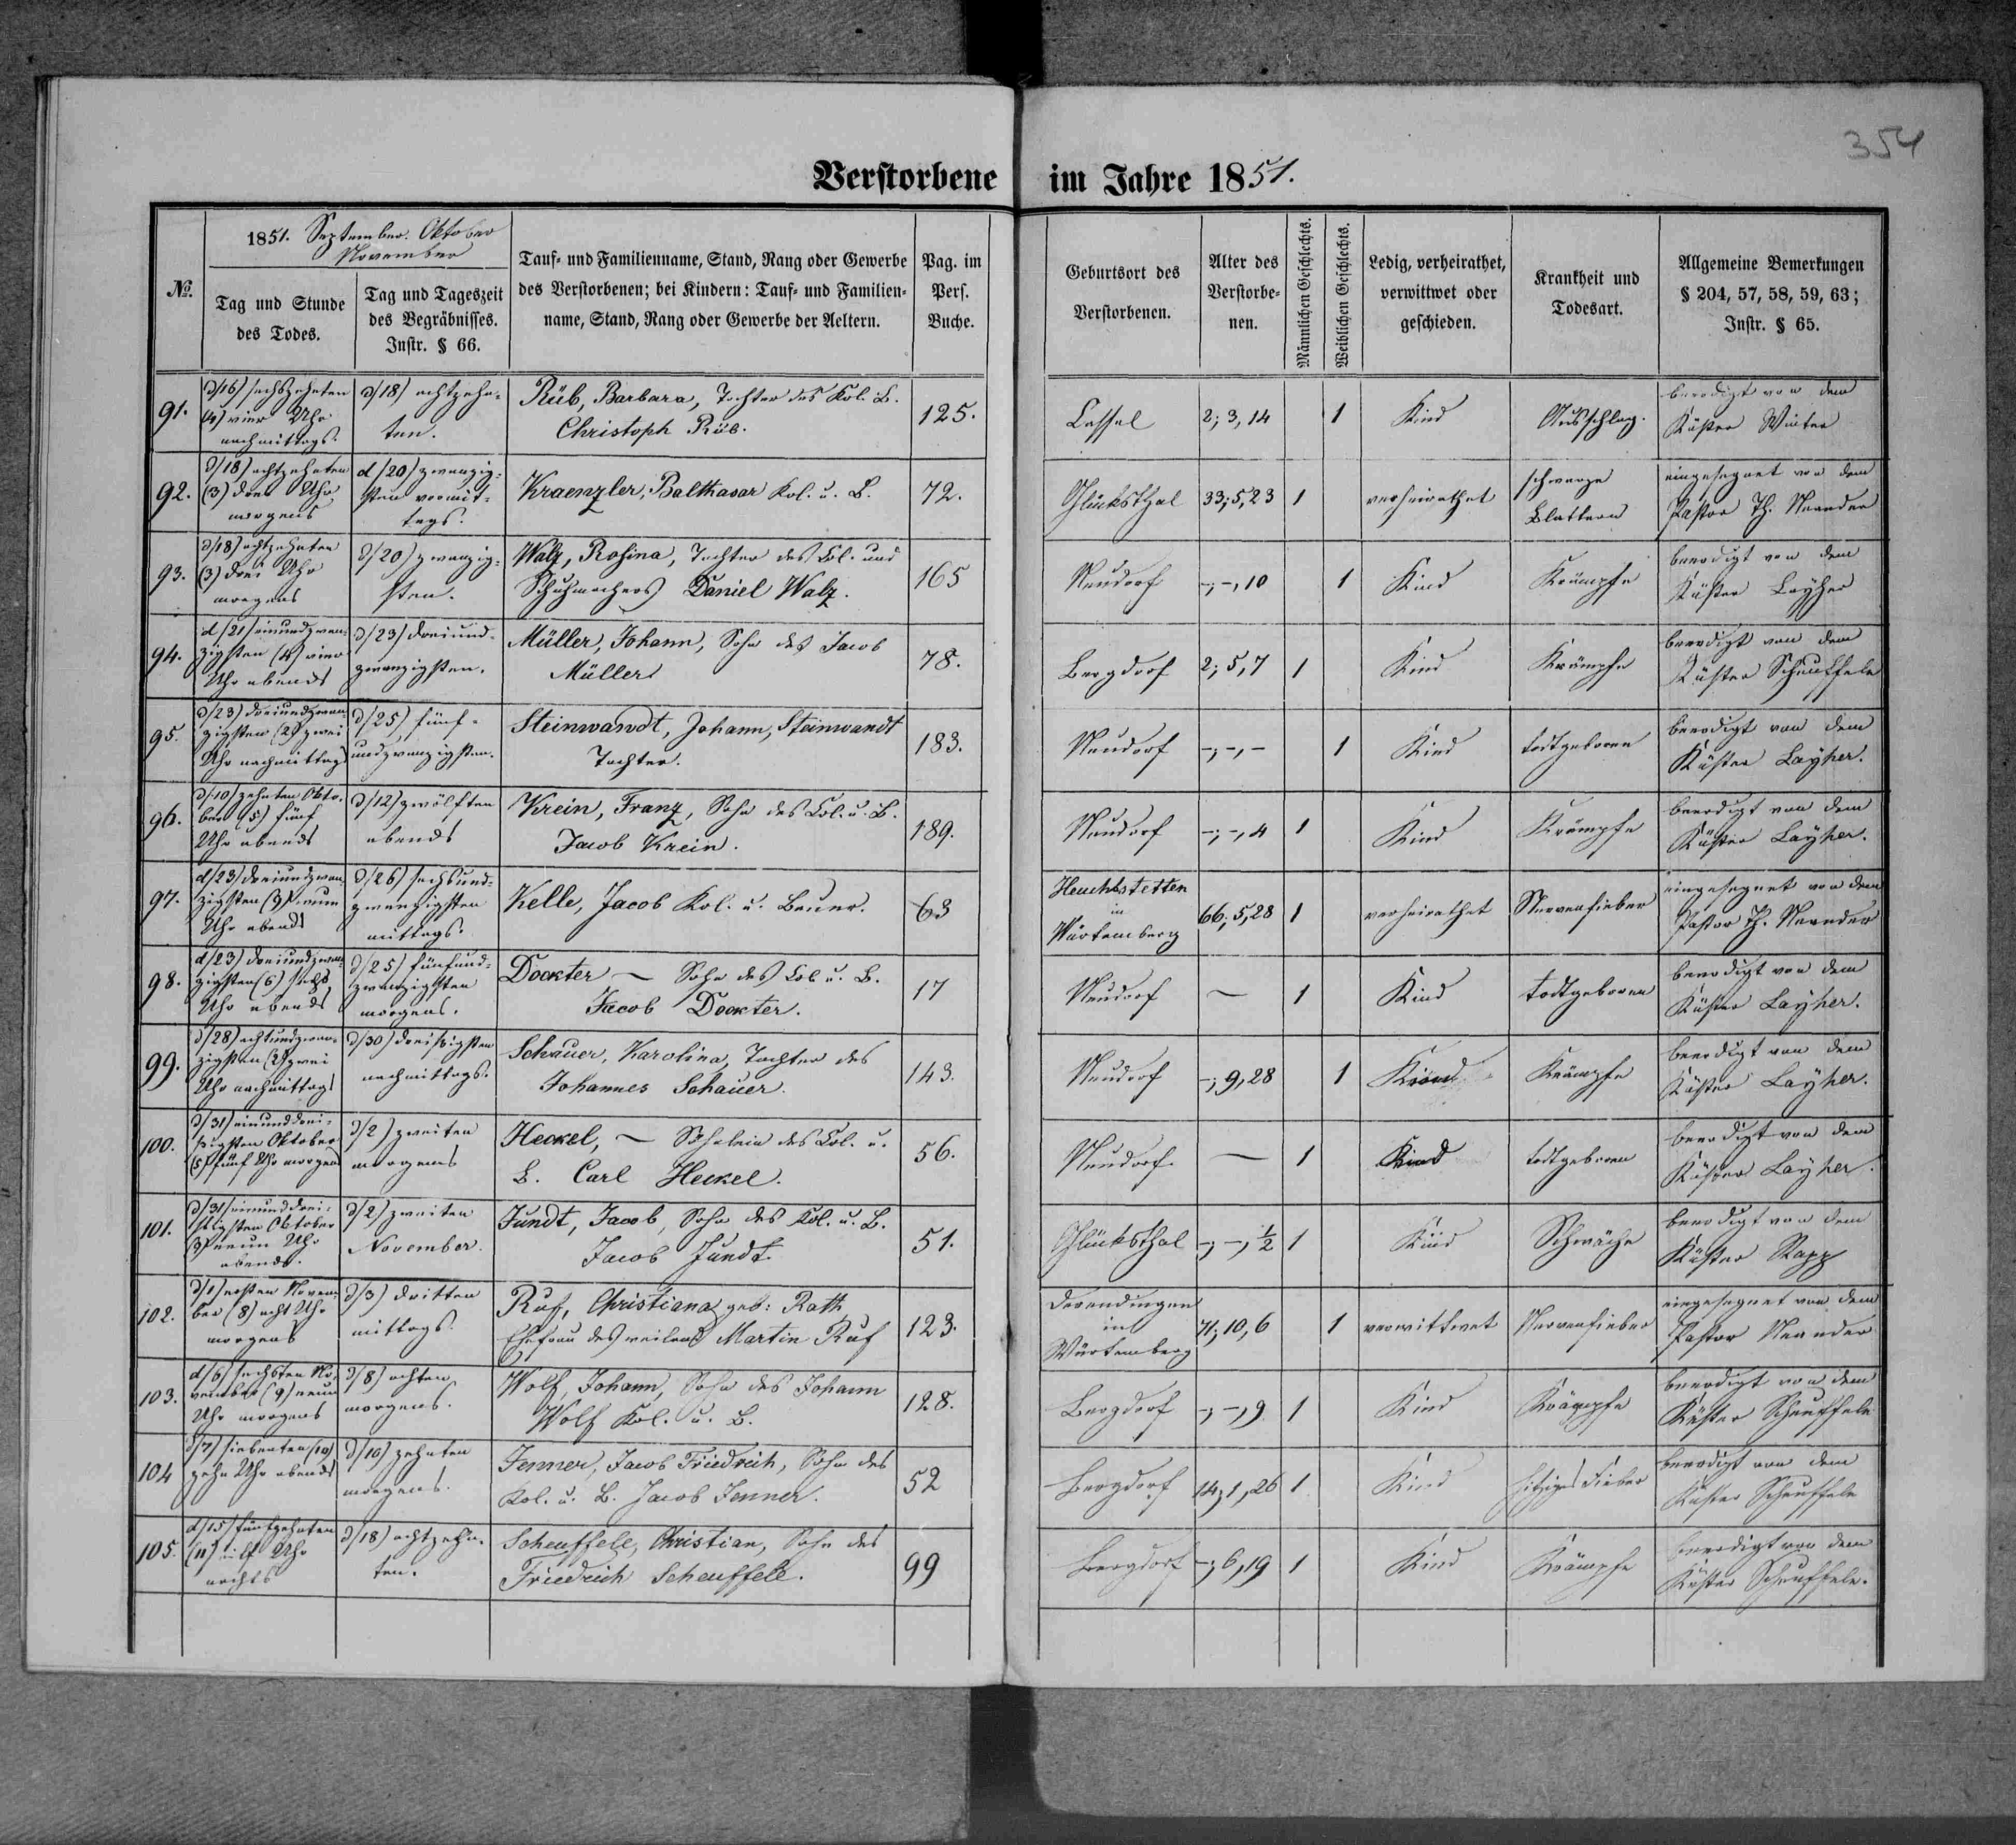 354
Verstorbene im Jahre 1851.
1851. September. Oktober
November
No.
Tag und Stunde
des Todes.
Tag und Tageszeit
des Begräbnisses.
Instr. § 66.
Tauf- und Familienname, Stand, Rang oder Gewerbe
des Verstorbenen; bei Kindern: Tauf- und Familien-
name, Stand, Rang oder Gewerbe der Aeltern.
Pag. im
Pers.
Buche.
Geburtsort des
Verstorbenen.
Alter des
Verstorbe-
nen.
Männlichen Geschlechts.
Weiblichen Geschlechts.
Ledig, verheirathet,
verwittwet oder
geschieden.
Krankheit und
Todesart.
Allgemeine Bemerkungen
§ 204, 57, 58, 59, 63;
Instr. § 65.
91.
d/16) sechszehnten
(4) vier Uhr
nachmittags.
d/18) achtzehn-
ten.
Rüb, Barbara, Tochter des Kol. B.
Christoph Rüb.
125.
Cassel
2; 3, 14
1
Kind
Ausschlag.
beerdigt von dem
Küster Winter
92.
d/18) achtzehnten
(3) drei Uhr
morgens
d/20) zwanzig-
sten vormit-
tags.
Kraenzler, Balthasar Kol. u. B.
72.
Glücksthal
33; 5, 23
1
verheirathet
schwarze
Blattern
eingesegnet von dem
Pastor Th. Neander
93.
d/18) achtzehnten
(3) drei Uhr
morgens
d/20) zwanzig-
sten.
Walz, Rosina, Tochter des Col. und
Schuhmachers Daniel Walz.
165
Neudorf
-; -, 10
1
Kind
Krämpfe
beerdigt von dem
Küster Layher
94.
d/21) einundzwan-
zigsten (4) vier
Uhr abends
d/23) dreiund-
zwanzigsten.
Müller, Johann, Sohn des Jacob
Müller
78.
Bergdorf
2; 5, 7
1
Kind
Krämpfe
beerdigt von dem
Küster Scheuffele
95.
d/23) dreiundzwan-
zigsten (2) zwei
Uhr nachmittags
d/25) fünf-
undzwanzigsten.
Steinwandt, Johann, Steinwandt
Tochter.
183.
Neudorf
-; -, -
1
Kind
todtgeboren
beerdigt von dem
Küster Layher.
96.
d/10) zehnten Okto-
ber (5) fünf
Uhr abends
d/12) zwölften
abends
Krein, Franz, Sohn des Col. u. B.
Jacob Krein.
189.
Neudorf
-; -, 4
1
Kind
Krämpfe
beerdigt von dem
Küster Layher.
97.
d/23) dreiundzwan-
zigsten (9) neun
Uhr abends
d/26) sechsund-
zwanzigsten
mittags.
Kelle, Jacob Kol. u. Bauer.
63
Heuchstetten
in
Würtemberg
66; 5, 28
1
verheirathet
Nervenfieber
eingesegnet von dem
Pastor Th. Neander
98.
d/23) dreiundzwan-
zigsten (6) sechs
Uhr abends
d/25) fünfund-
zwanzigsten
morgens.
Dockter — Sohn des Col. u. B.
Jacob Dockter.
17
Neudorf
—
1
Kind
todtgeboren
beerdigt von dem
Küster Layher.
99.
d/28) achtundzwan-
zigsten (2) zwei
Uhr nachmittags
d/30) dreißigsten
nachmittags.
Schauer, Karolina, Tochter des
Johannes Schauer.
143.
Neudorf
-; 9, 28
1
Kind
Krämpfe
beerdigt von dem
Küster Layher.
100.
d/31) einunddrei-
ßigsten Oktober
(5) fünf Uhr morgens
d/2) zweiten
morgens
Heckel, — Söhnlein des Col. u.
B. Carl Heckel.
56.
Neudorf.
—
1
Kind
todtgeboren
beerdigt von dem
Küster Layher.
101.
d/31) einunddrei-
ßigsten Oktober
(9) neun Uhr
abends.
d/2) zweiten
November.
Jundt, Jacob, Sohn des Kol. u. B.
Jacob Jundt.
51.
Glücksthal
-; -, ½
1
Kind
Schwäche
beerdigt von dem
Küster Rapp
102.
d/1) ersten Novem-
ber (8) acht Uhr
morgens
d/3) dritten
mittags.
Ruf, Christiana geb: Rath
Ehefrau des weiland Martin Ruf
123.
Derendingen
in
Würtemberg
71; 10, 6
1
verwittwet
Nervenfieber
eingesegnet von dem
Pastor Neander
103.
d/6) sechsten No-
vember (9) neun
Uhr morgens
d/8) achten
morgens.
Wolf, Johann, Sohn des Johann
Wolf Kol. u. B.
128.
Bergdorf
-; -, 9
1
Kind
Krämpfe
beerdigt von dem
Küster Scheuffele
104
d/7) siebenten (10)
zehn Uhr abends
d/10) zehnten
morgens.
Jenner, Jacob Friedrich, Sohn des
Kol. u. B. Jacob Jenner.
52
Bergdorf
14; 1, 26
1
Kind
hitziges Fieber
beerdigt von dem
Küster Scheuffele
105.
d/15) fünfzehnten
(11) eilf Uhr
nachts
d/18) achtzehn-
ten.
Scheuffele, Christian, Sohn des
Friedrich Scheuffele.
99
Bergdorf
-; 6, 19
1
Kind
Krämpfe
beerdigt von dem
Küster Scheuffele.